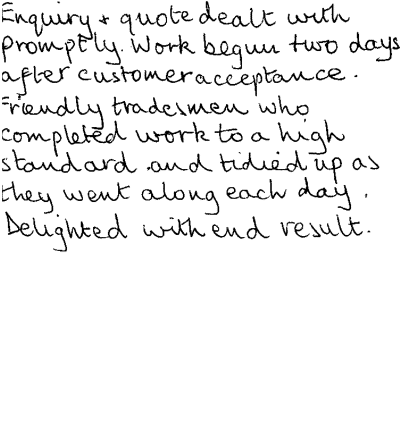 Enquiry + quote dealt with
promptly. Work begun two days
after customer acceptance.
Friendly tradesmen who
completed work to a high
standard .and tidied up as
they went along each day.
Delighted with end result.